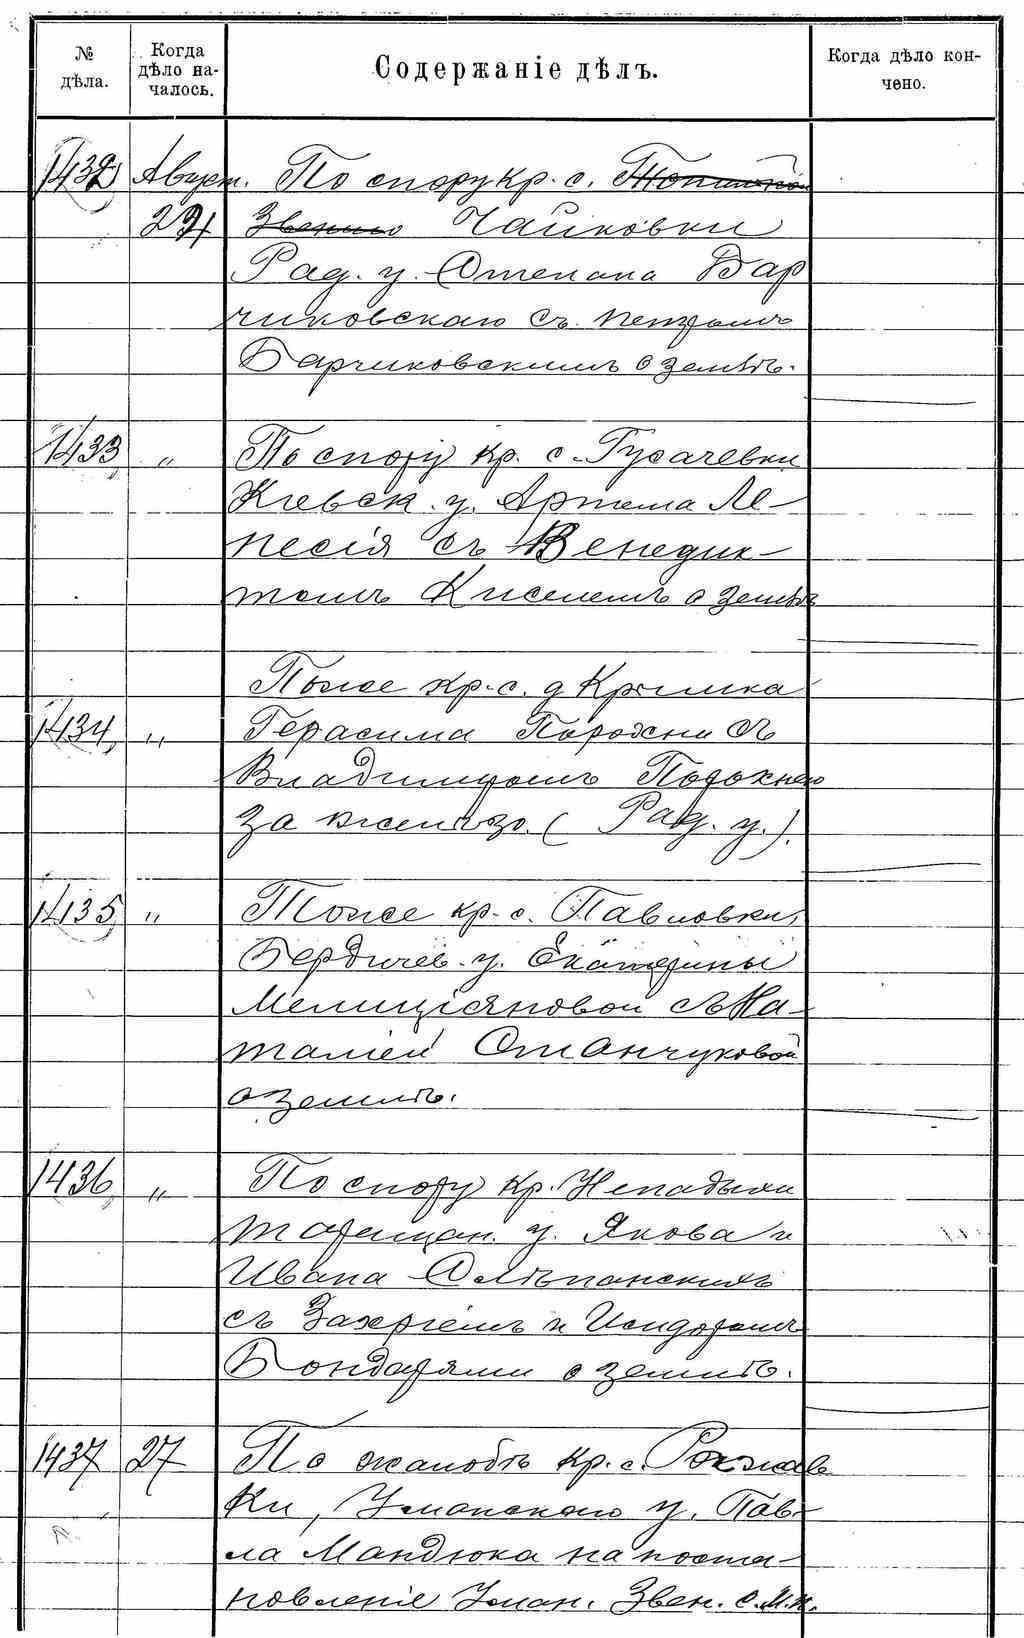 № дѣла.
Когда дѣло началось.
Содержаніе дѣлъ.
Когда дѣло кончено.
1432 Август. По спору кр. с.
Звениг Чайковки
Рад. у. Степана Бар
чиковскаго съ Петромъ
Барчиковскимъ о землѣ.
1433 „ По спору кр. с. Гусачевки
Кіевск. у. Артема Ле-
песія съ Венедик-
томъ Киселемъ о землѣ
Тоже кр. с. д Крымка
1434, „ Герасима Порохни съ
Владимиромъ Порохнею
за желѣзо. (Рад. у.).
1435 „ Тоже кр. с. Павловки,
Бердичев. у. Екатерины
съ На-
таліей Станчуковой
о землѣ.
1436 „ По спору кр. Непадыхи
Таращан. у. Якова и
Ивана
съ Захаріемъ и Исидоромъ
Бондарями о землѣ.
1437 27 По жалобѣ кр. с.
ки, Уманскаго у. Пав-
ла Мандюка на поста-
новленіе Уман. Звен. С.М.П.